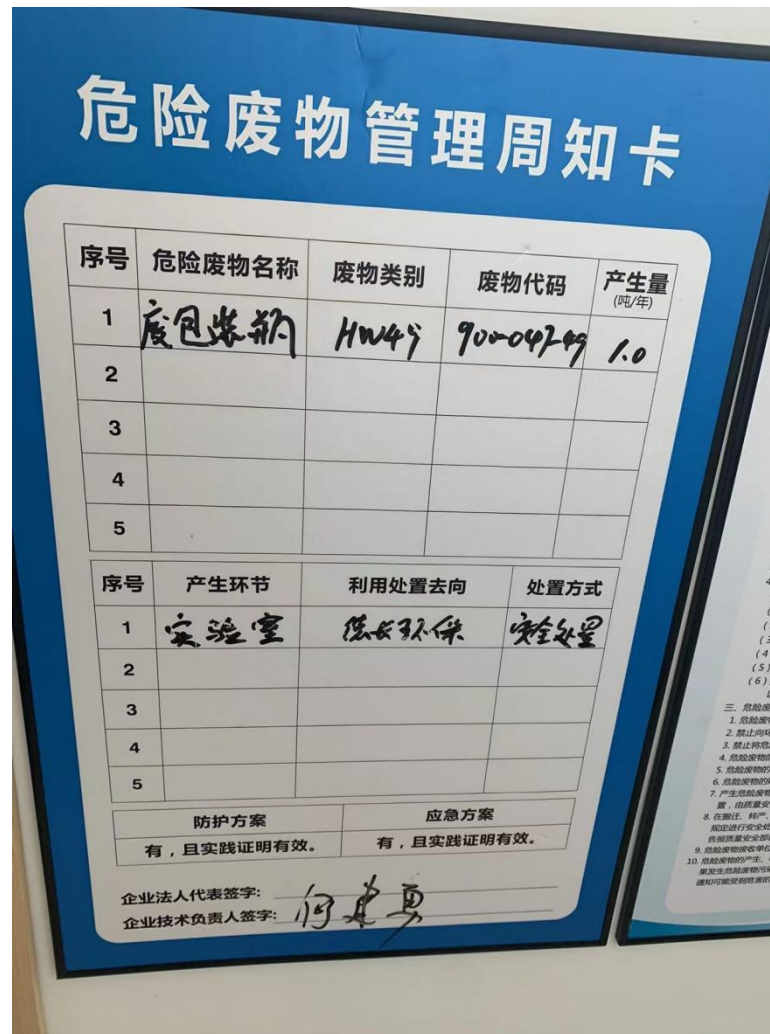 危险废物管理周知卡
序号 危险废物名称 废物类别 废物代码 产生量(吨/年)
1 废包装瓶 HW49 900-047-49 1.0
2
3
4
5
序号 产生环节 利用处置去向 处置方式
1 实验室 德长环保 安全处置
2
3
4
5
防护方案 应急方案
有，且实践证明有效。 有，且实践证明有效。
企业法人代表签字：
企业技术负责人签字：何建勇
三、危险废
1. 危险废物
2. 禁止向环
3. 禁止将危
4. 危险废物的
5. 危险废物的
6. 危险废物的
7. 产生危险废物
置，由质量安
8. 在搬迁、转产、
规定进行安全处
告报质量安全部
9. 危险废物接收单位
10. 危险废物的产生、
果发生危险废物污
通知可能受到危害的